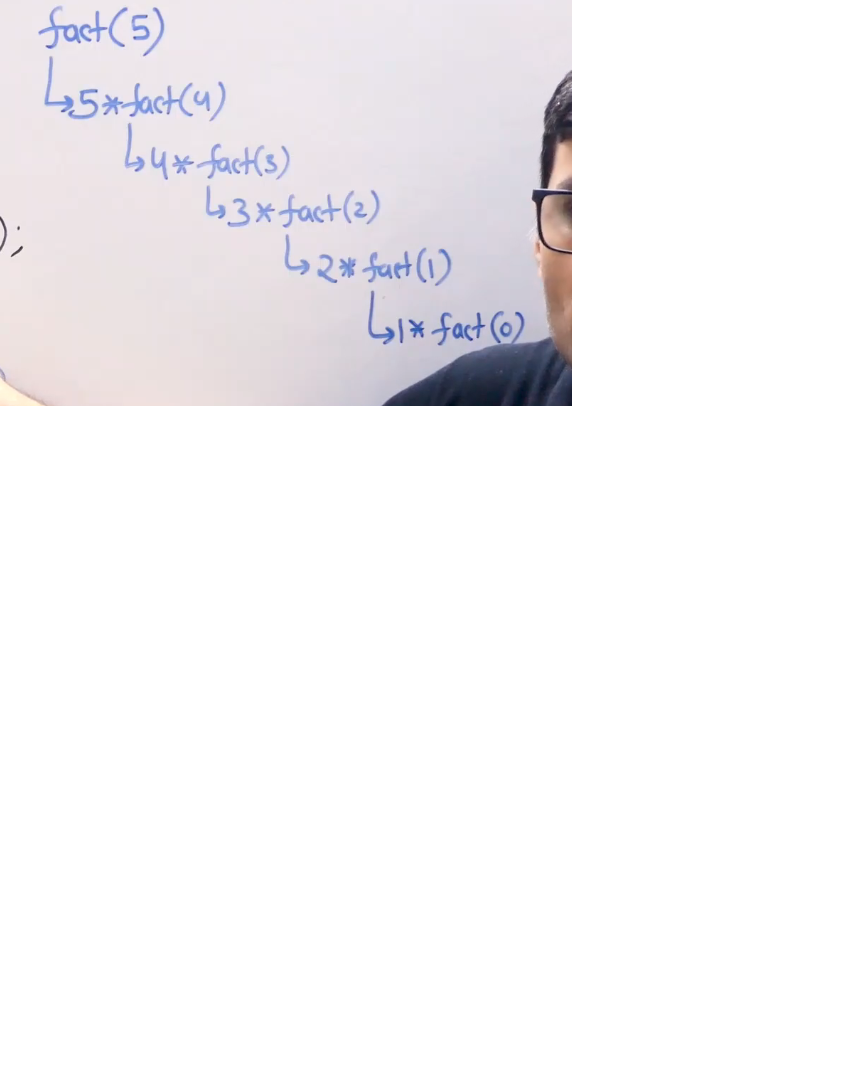 fact(5)
5*fact(4)
4*fact(3)
);
3*fact(2)
2*fact(1)
1*fact(0)